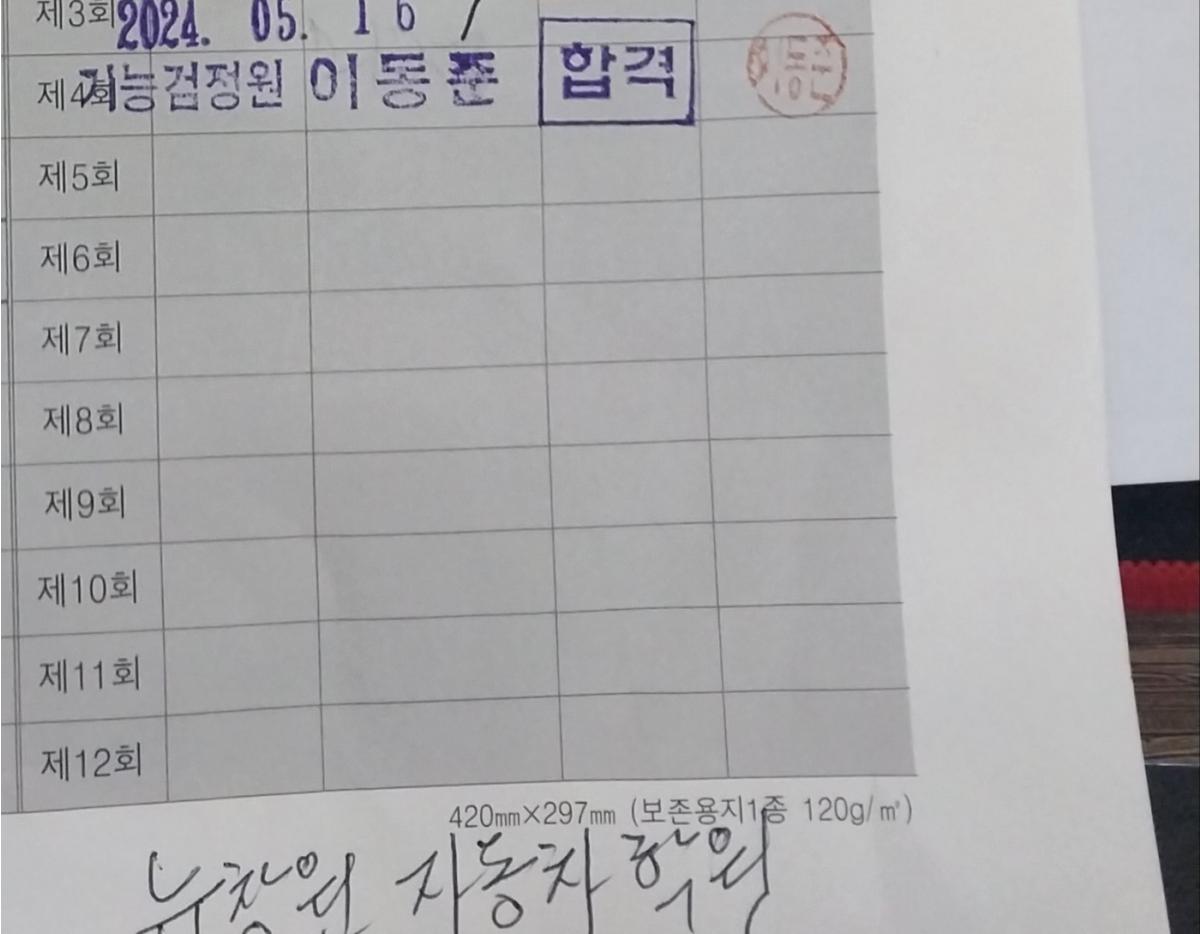 제3회 2024. 05. 16 /
제4회 기능검정원 이동준 합격
제5회
제6회
제7회
제8회
제9회
제10회
제11회
제12회
420mm×297mm (보존용지1종 120g/㎡)
뉴창원 자동차 학원